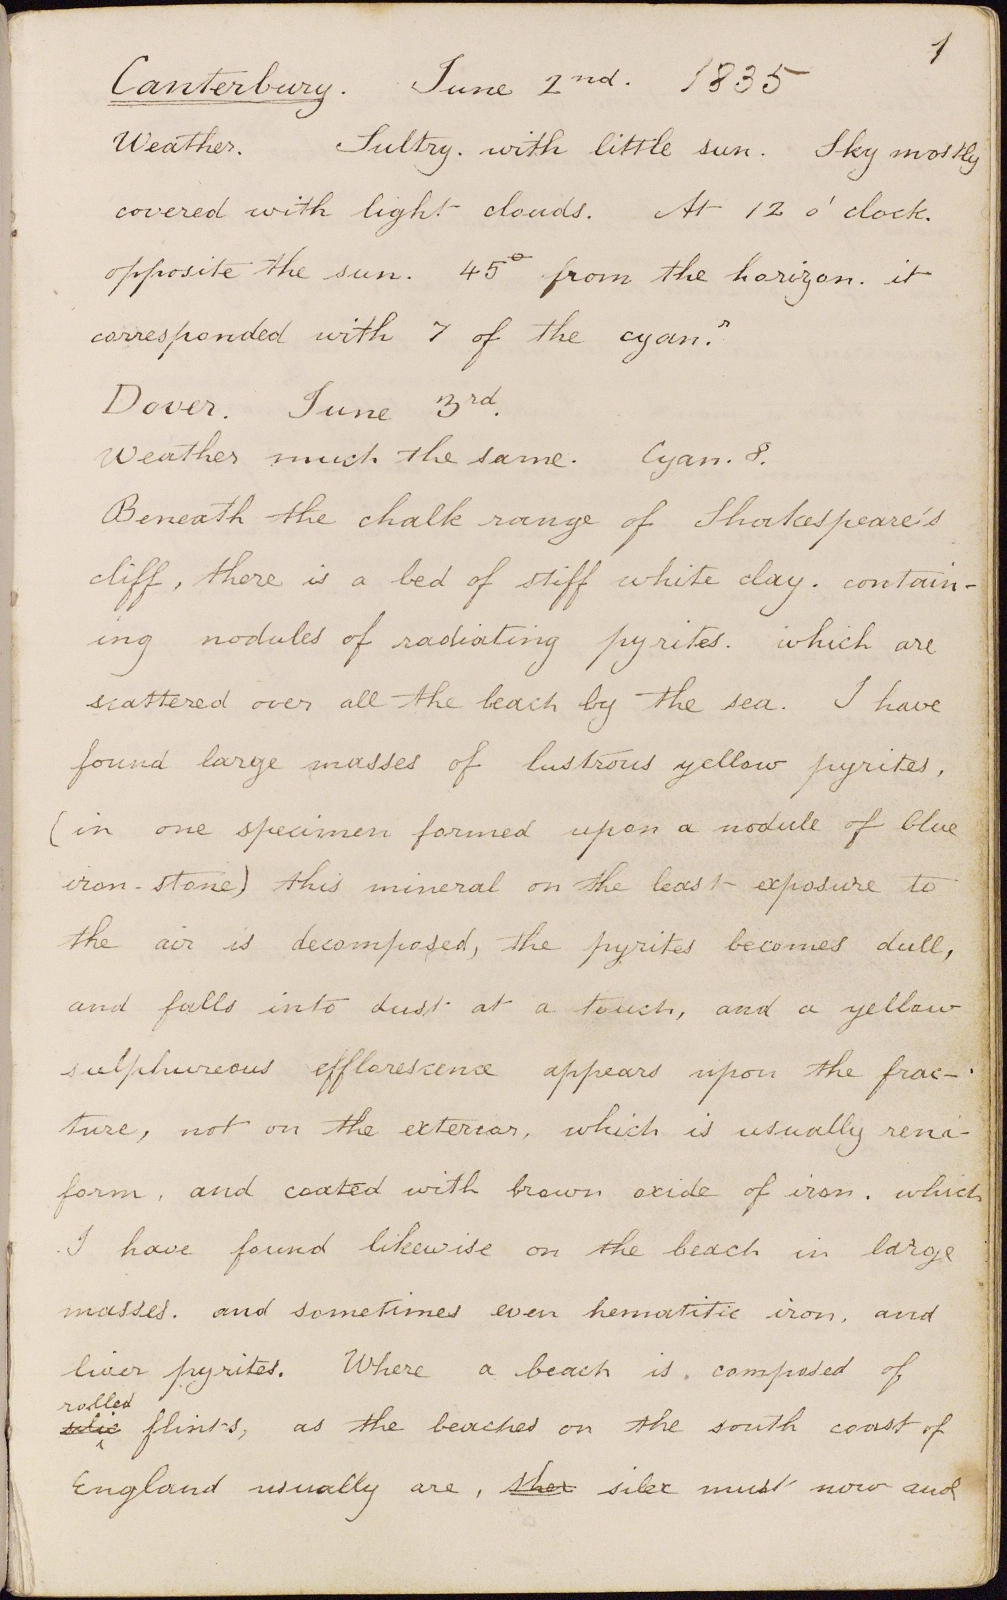 1
Canterbury. June 2nd. 1835
Weather. Sultry. with little sun. Sky mostly
covered with light clouds. At 12 o' clock.
opposite the sun. 45° from the horizon. it
corresponded with 7 of the cyan.r
Dover. June 3rd.
Weather much the same. Cyan. 8.
Beneath the chalk range of Shakespeare's
cliff, there is a bed of stiff white clay. contain-
ing nodules of radiating pyrites. which are
scattered over all the beach by the sea. I have
found large masses of lustrous yellow pyrites,
(in one specimen formed upon a nodule of blue
iron-stone) this mineral on the least exposure to
the air is decomposed, the pyrites becomes dull,
and falls into dust at a touch, and a yellow
sulphureous efflorescence appears upon the frac-
ture, not on the exterior, which is usually reni-
form, and coated with brown oxide of iron. which
I have found likewise on the beach in large
masses. and sometimes even hematitic iron, and
liver pyrites. Where a beach is composed of
rolled
flints, as the beaches on the south coast of
England usually are, silex must now and